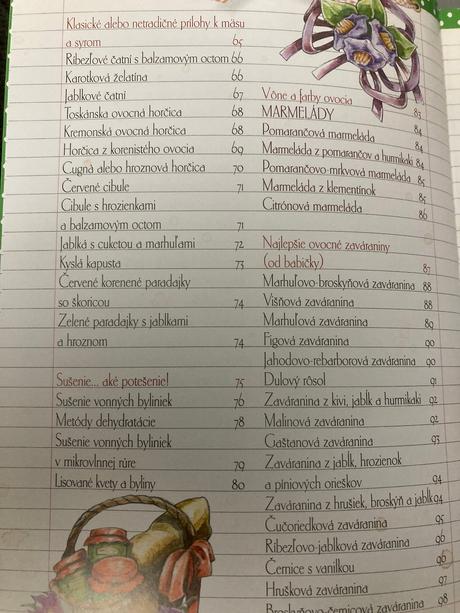 Klasické alebo netradičné prílohy k mäsu
a syrom 65
Ribezľové čatní s balzamovým octom 66
Karotková želatína 66
Jablkové čatní 67
Toskánska ovocná horčica 68
Kremonská ovocná horčica 68
Horčica z korenistého ovocia 69
Cugnà alebo hroznová horčica 70
Červené cibule 71
Cibule s hrozienkami
a balzamovým octom 71
Jablká s cuketou a marhuľami 72
Kyslá kapusta 73
Červené korenené paradajky
so škoricou 74
Zelené paradajky s jablkami
a hroznom 74
Sušenie... aké potešenie! 75
Sušenie vonných byliniek 76
Metódy dehydratácie 78
Sušenie vonných byliniek
v mikrovlnnej rúre 79
Lisované kvety a byliny 80
Vône a farby ovocia 83
MARMELÁDY 84
Pomarančová marmeláda 84
Marmeláda z pomarančov a hurmikaki 84
Pomarančovo-mrkvová marmeláda 85
Marmeláda z klementínok 85
Citrónová marmeláda 86
Najlepšie ovocné zaváraniny
(od babičky) 87
Marhuľovo-broskyňová zaváranina 88
Višňová zaváranina 88
Marhuľová zaváranina 89
Figová zaváranina 90
Jahodovo-rebarborová zaváranina 90
Dulový rôsol 91
Zaváranina z kivi, jabĺk a hurmikaki 92
Malinová zaváranina 92
Gaštanová zaváranina 93
Zaváranina z jabĺk, hrozienok
a píniových orieškov 94
Zaváranina z hrušiek, broskýň a jabĺk 94
Čučoriedková zaváranina 95
Ribezľovo-jablková zaváranina 96
Černice s vanilkou 96
Hrušková zaváranina 97
Broskyňovo-žltomelónová 98